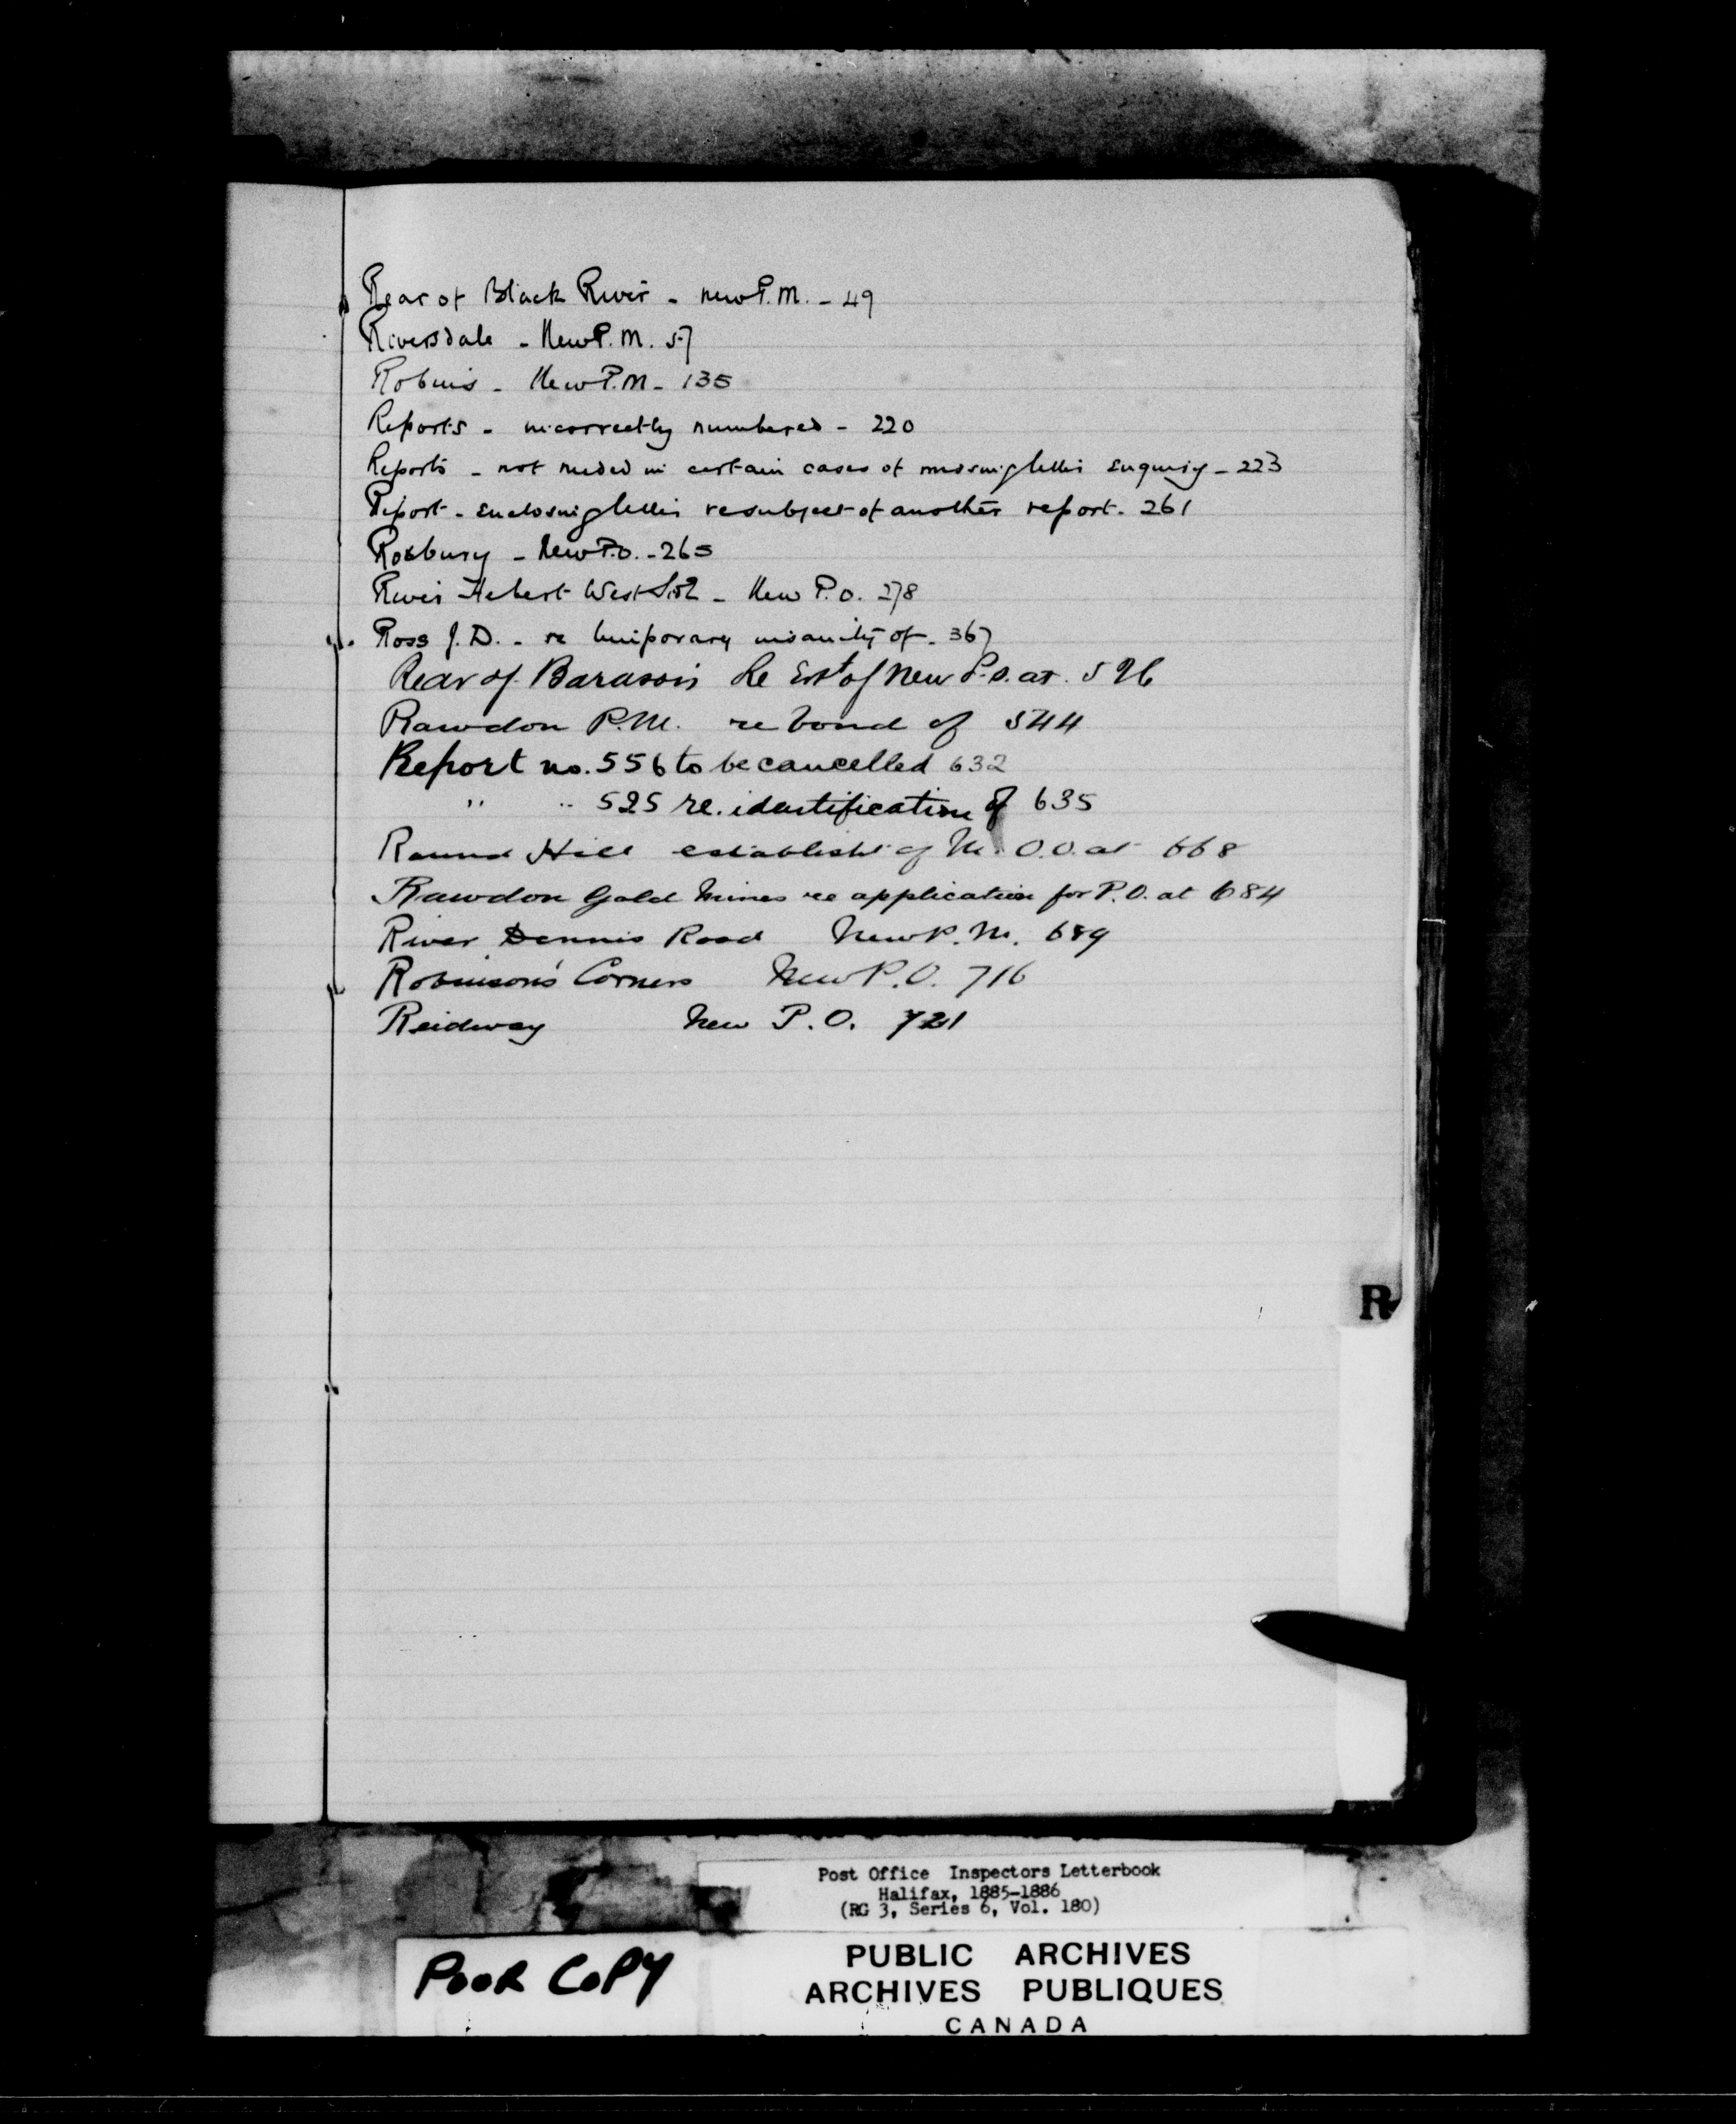 Rear of Black River - new P.M. - 49
Riversdale - New P.M. 57
Robins - New P.M - 135
Reports - incorrectly numbered - 220
Reports - not needed in certain cases of missing letter enquiry - 223
Report - enclosing letter re subject of another report - 261
Roxbury - New P.O. - 265
River Hebert West Side - New P.O. 278
Ross J. D. - re temporary insanity of - 367
Rear of Barassois Re Est of New P.O. at 526
Rawdon P.M. re bond of 544
Report no. 556 to be cancelled 632
" " 525 re. identification of 635
Round Hill establisht of M. O. O. at 668
Rawdon Gold Mines re application for P.O. at 684
River Dennis Road New P.M. 689
Robinson's Corners New P.O. 716
Reidway New P.O. 721
R
Post Office Inspectors Letterbook
Halifax, 1885-1886
(RG 3, Series 6, Vol. 180)
POOR COPY
PUBLIC ARCHIVES
ARCHIVES PUBLIQUES
CANADA